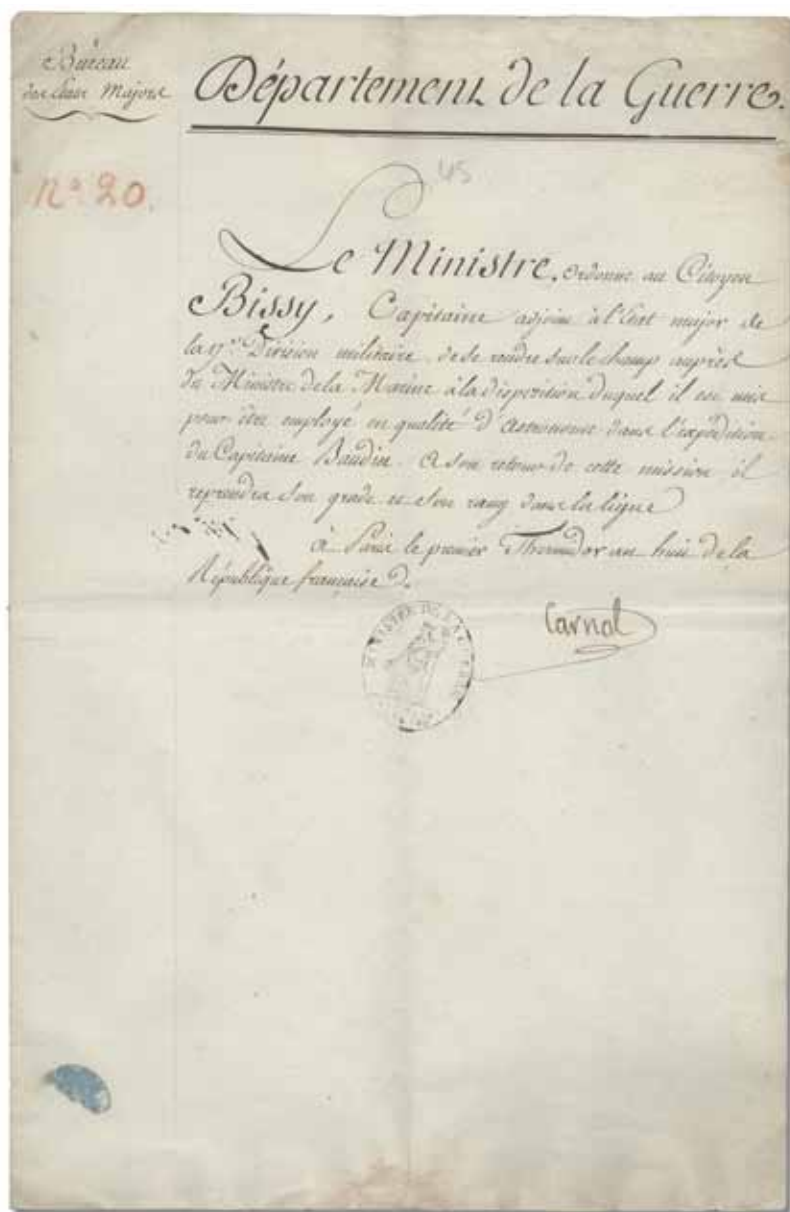 Bureau
des États Majors
Département de la Guerre.
n.° 20.
45
Le Ministre, ordonne au Citoyen
Bissy, Capitaine adjoint à l'État major de
la 17.e Division militaire, de se rendre sur le champ auprès
du Ministre de la Marine à la disposition duquel il est mis
pour être employé en qualité d'astronome dans l'expédition
du Capitaine Baudin. A son retour de cette mission il
reprendra son grade et son rang dans la ligne
à Paris le premier Thermidor an huit de la
République française
Carnot
MINISTRE DE LA GUERRE